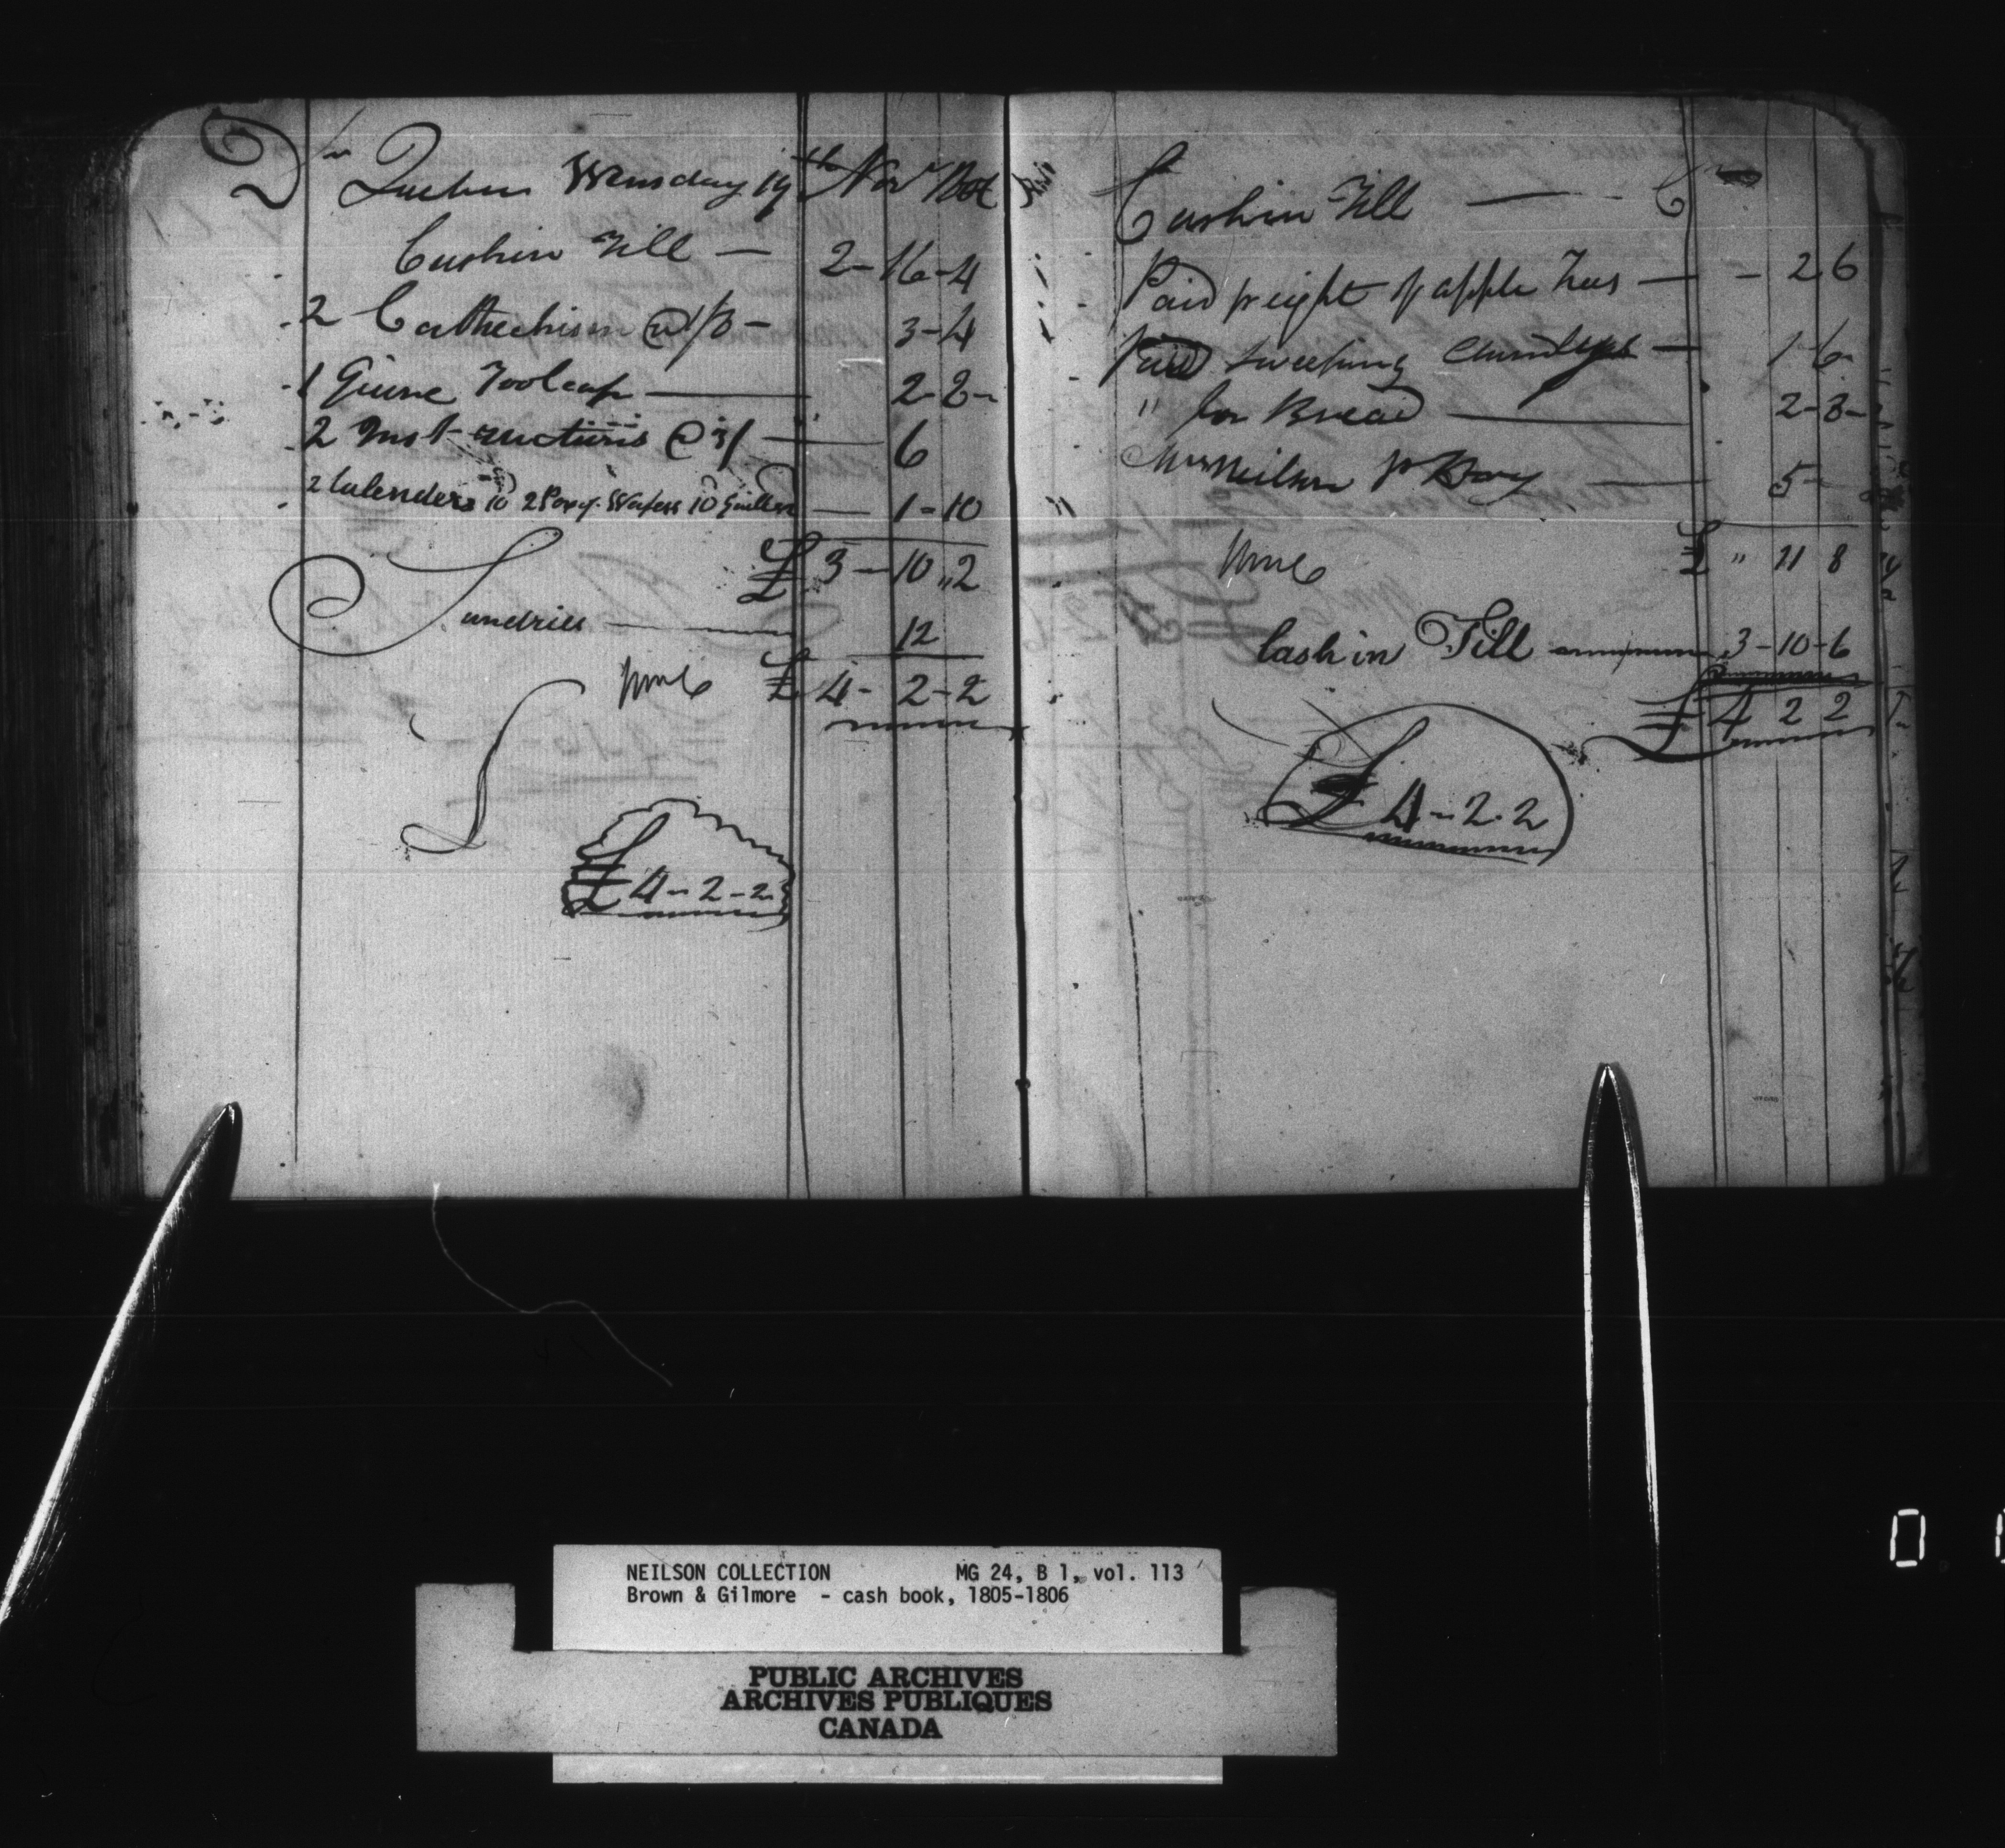 Dr Quebec Wensday 19th Novr
Cash in Till — 2-16-4
2 Cathechism @ 1/8 — 3-4
1 Quire Foolcap — 2-8
2 Instructions @ 3/ — 6
2 Calenders 10 2 Wafers 10 Quills — 1-10
£ 3-10,,2
Sundries — 12
£ 4-2-2
£ 4-2-2
Cash in Till — C
Paid freight of apple Trees — 2 6
Paid sweeping — 1-6
" for Bread — 2-8
Mrs Neilson pr Boy — 5
£ " 11 8
Cash in Till 3-10-6
£ 4 2 2
£ 4-2-2
NEILSON COLLECTION MG 24, B 1, vol. 113
Brown & Gilmore - cash book, 1805-1806
PUBLIC ARCHIVES
ARCHIVES PUBLIQUES
CANADA
0